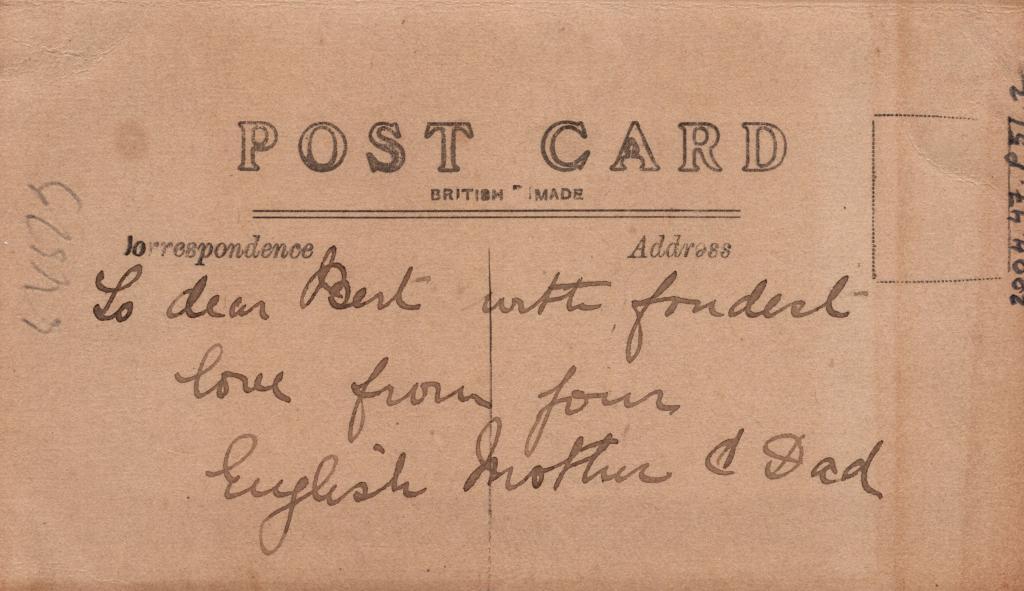 POST CARD
BRITISH MADE
Correspondence
Address
To dear Bert with fondest
love from your
English Mother & Dad
2004.47.P51.2